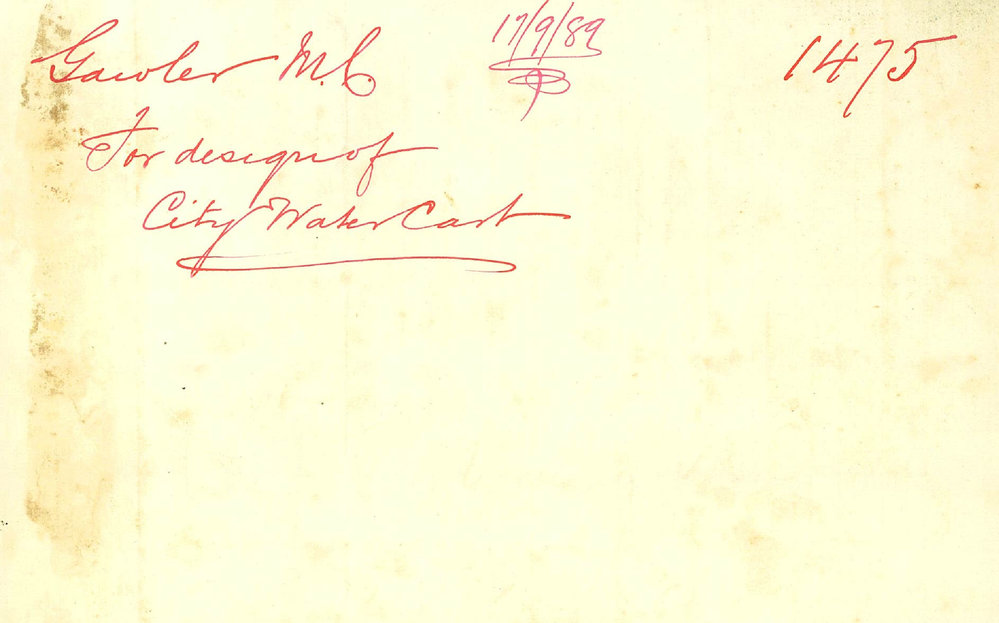 Gawler M.C. 17/9/89 1475
For design of
City Water Cart